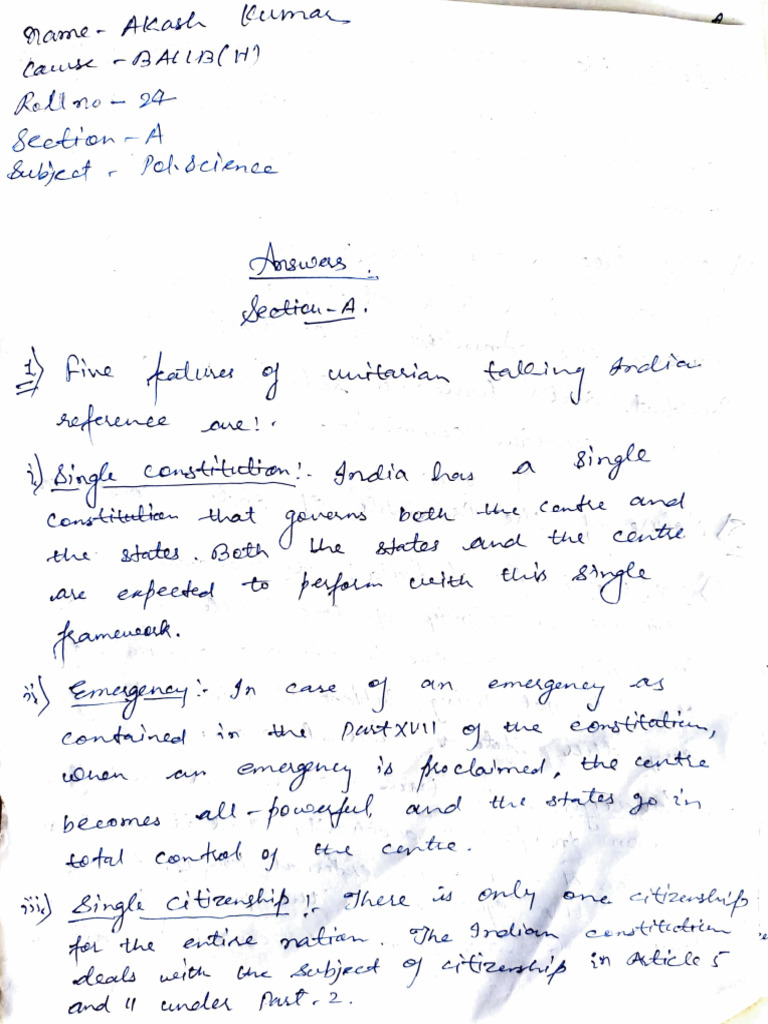 Name - Akash Kumar
Course - BALLB(H)
Roll no - 27
Section - A
Subject - Pol. Science
Answers.
Section - A.
1) Five features of unitarian talking India
reference are:-
i) Single constitution:- India has a single
constitution that governs both the centre and
the states. Both the states and the centre
are expected to perform with this single
framework.
ii) Emergency:- In case of an emergency as
contained in the Part XVII of the constitution,
when an emergency is proclaimed, the centre
becomes all-powerful, and the states go in
total control of the centre.
iii) Single citizenship:- There is only one citizenship
for the entire nation. The Indian constitution
deals with the subject of citizenship in Article 5
and 11 under Part. 2.